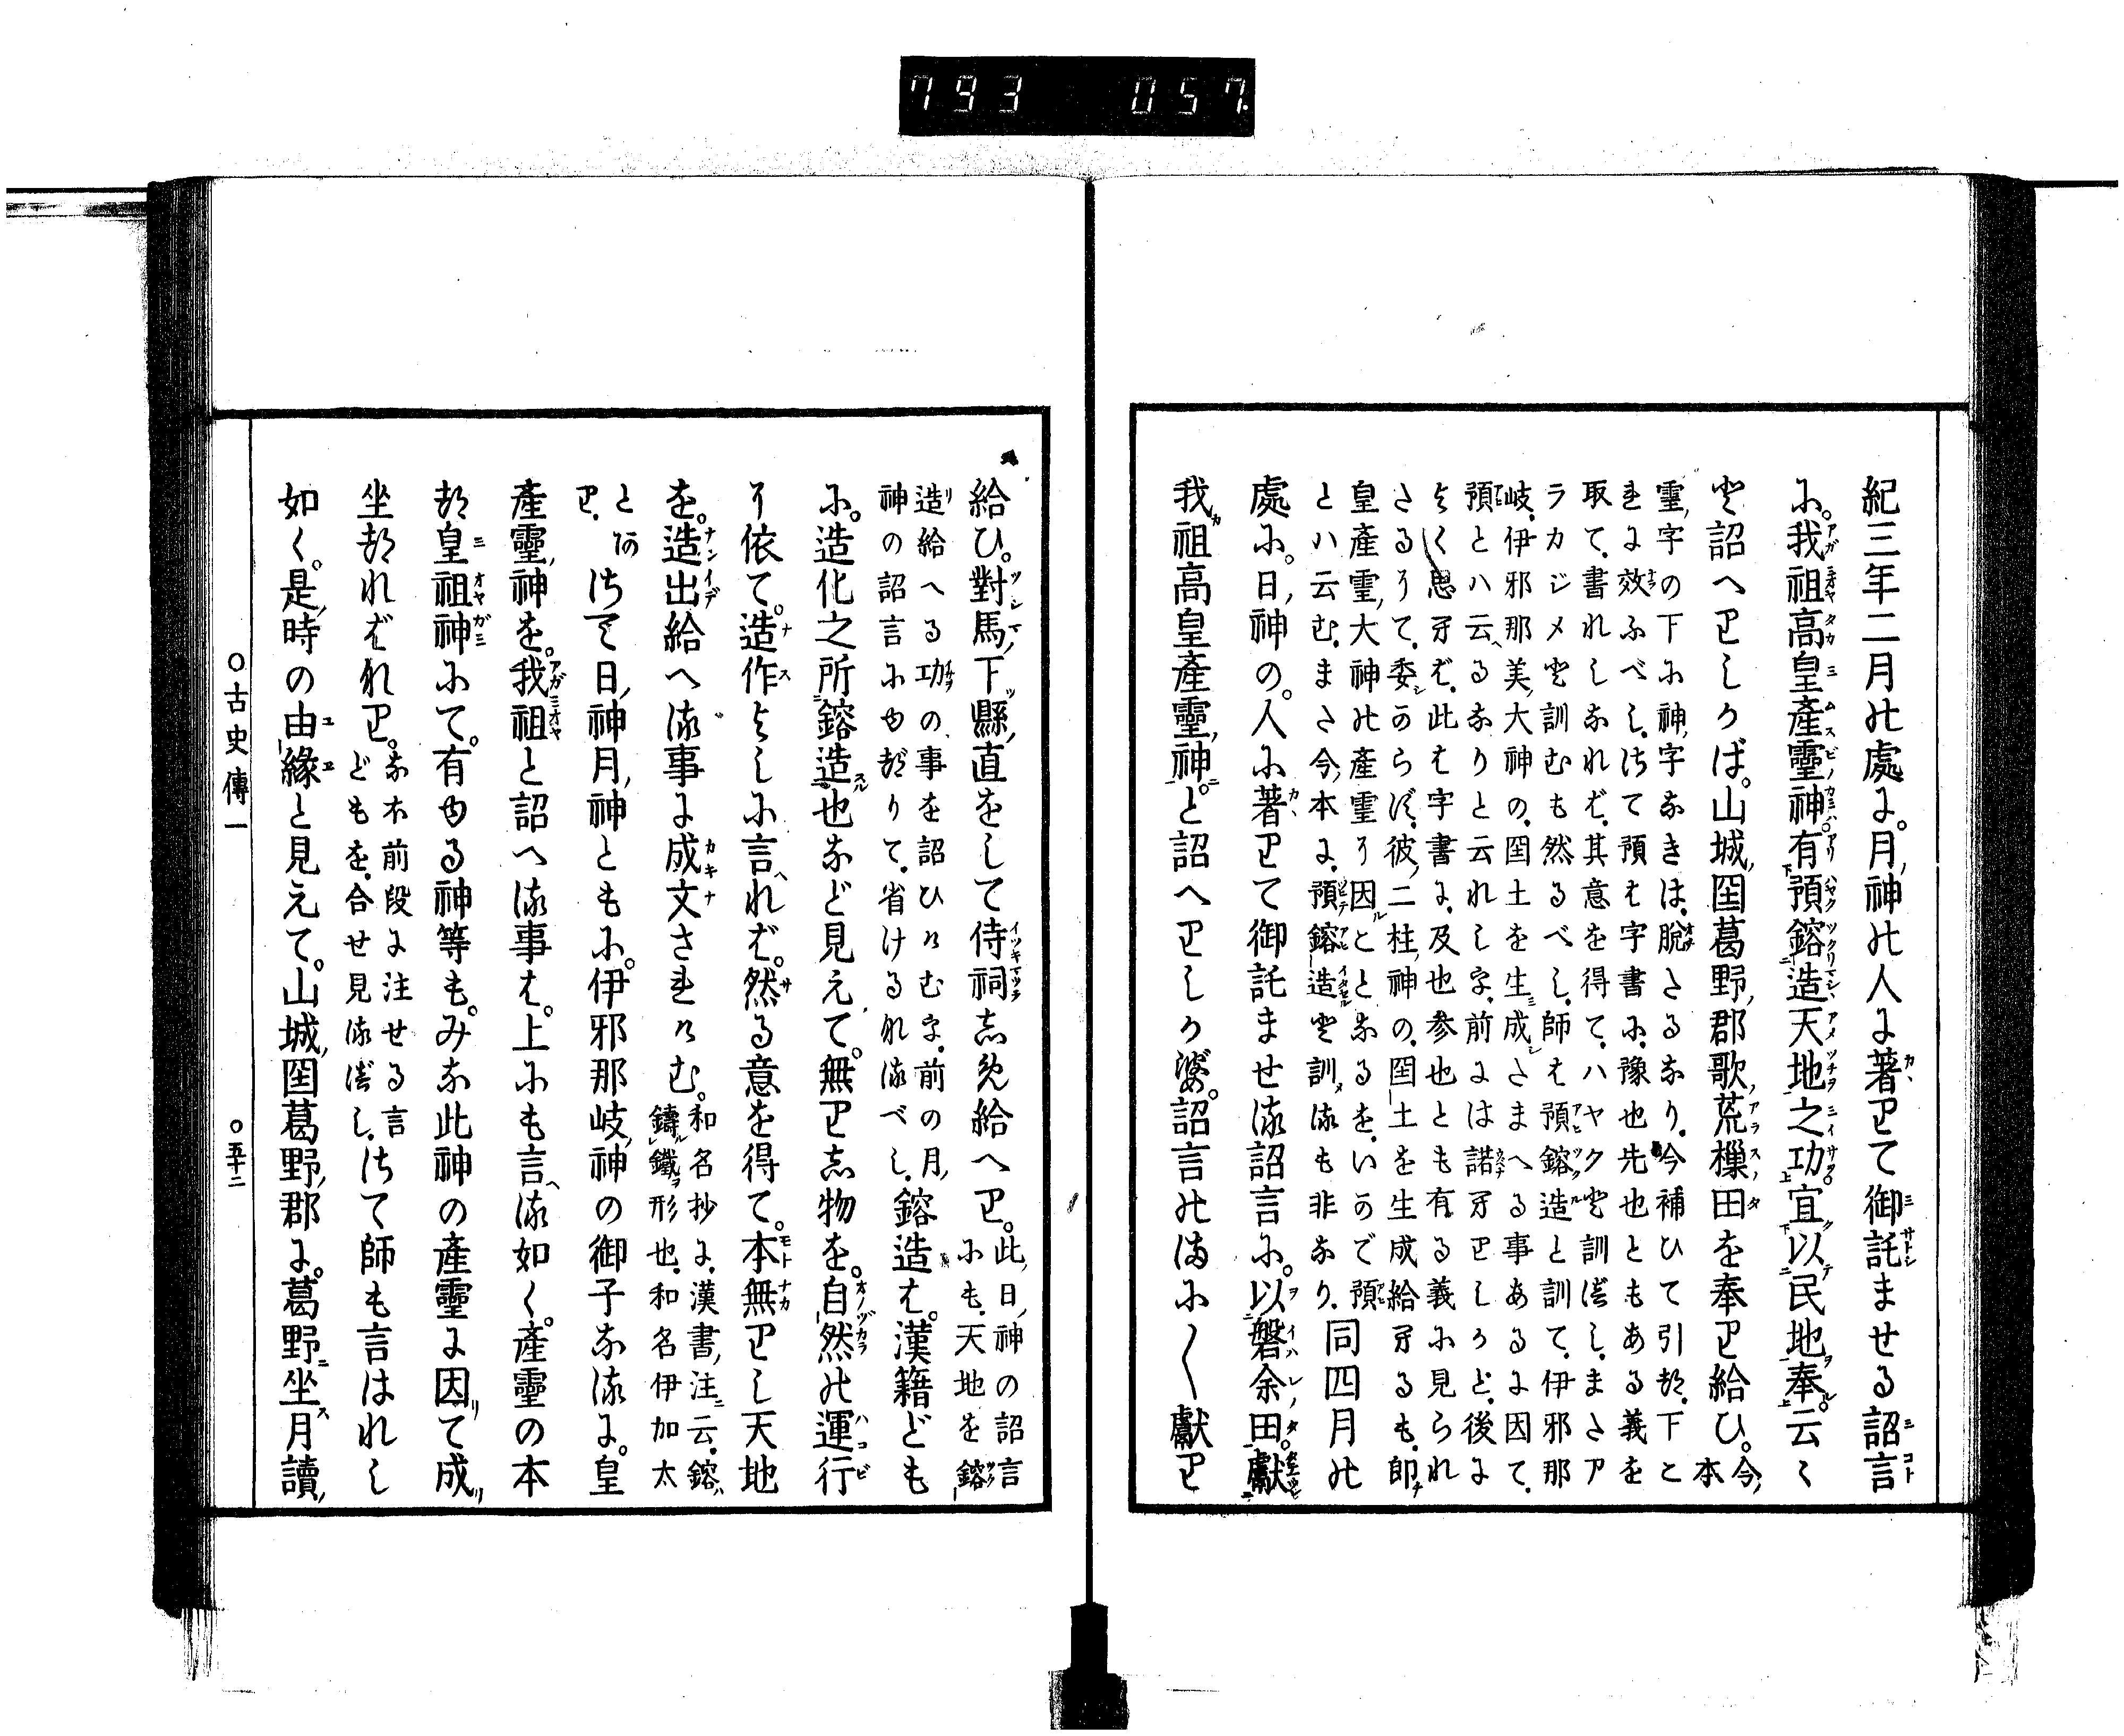 793 057.
紀三年二月の處に。月神の人に著りて御託ませる詔言
に。我祖高皇產靈神。有預鎔造天地之功。宜以民地奉。云々
と詔へりしかば。山城国葛野郡歌荒樔田を奉り給ひ。今本
靈字の下に神字なきは。脱たるなり。今補ひて引り。下こ
れに效ふべし。さて預は字書に。豫也先也ともある義を
取て。書れしなれば。其意を得て。ハヤクと訓べし。またア
ラカジメと訓むも然るべし。師は預鎔造と訓て。伊邪那
岐。伊邪那美大神の。国土を生成したまへる事あるに因て。
預とハ云へるなりと云れしを。前には諾ひしかど。後に
よく思へば。此は字書に。及也参也とも有る義に見られ
たるにて。委しからず。彼二柱神の。国土を生成給へるも。即
皇產靈大神の產靈に因ることとなるを。いかで預
とハ云む。また今本に。預鎔造と訓るも非なり。同四月の
處に。日神の。人に著りて御託ませる詔言に。以磐余田。獻
我祖高皇產靈神。と詔へりしかば。詔言のまに〱獻り
給ひ。對馬下縣直をして侍祠しめ給へり。此日神の詔言にも。天地を鎔
造給へる功の事を詔ひけむを。前の月神の詔言にゆづりて。省けるなるべし。鎔造は。漢籍ども
に。造化之所鎔造也など見えて。無りし物を。自然の運行
に依て。造作よしに言れど。然る意を得て。本無りし天地
を。造出給へる事に成文されけむ。和名抄に。漢書注云。鎔鑄鐵形也。和名伊加太
とあり。さて日神月神ともに。伊邪那岐神の御子なるに。皇
產靈神を。我祖と詔へる事は。上にも言る如く。產靈の本
つ皇祖神にて。有ゆる神等も。みな此神の產靈に因て成
坐つればなり。なほ前段に注せる言どもを。合せ見るべし。さて師も言はれし
如く。是時の由緣と見えて。山城国葛野郡に。葛野坐月讀
○古史傳一
○五十二